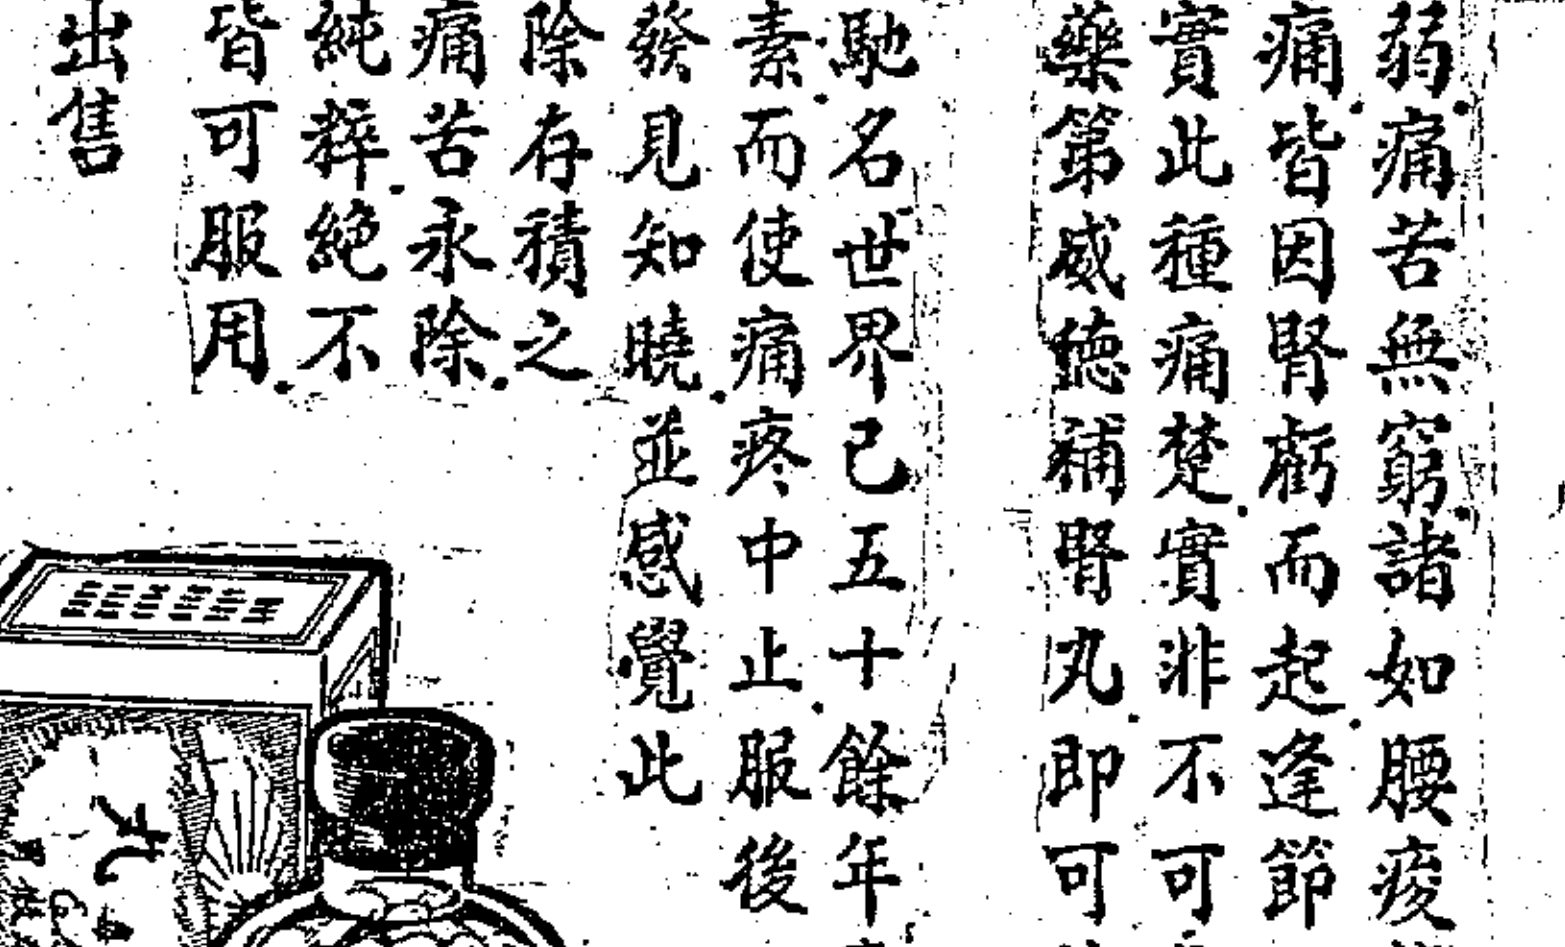 弱痛苦無窮諸如腰痠
痛皆因腎虧而起逢節
實此種痛楚實非不可
藥第威德補腎丸即可
馳名世界已五十餘年
素而使痛疼中止服後
發見知曉並感覺此
除存積之
痛苦永除
純粹絕不
皆可服用
出售
丸